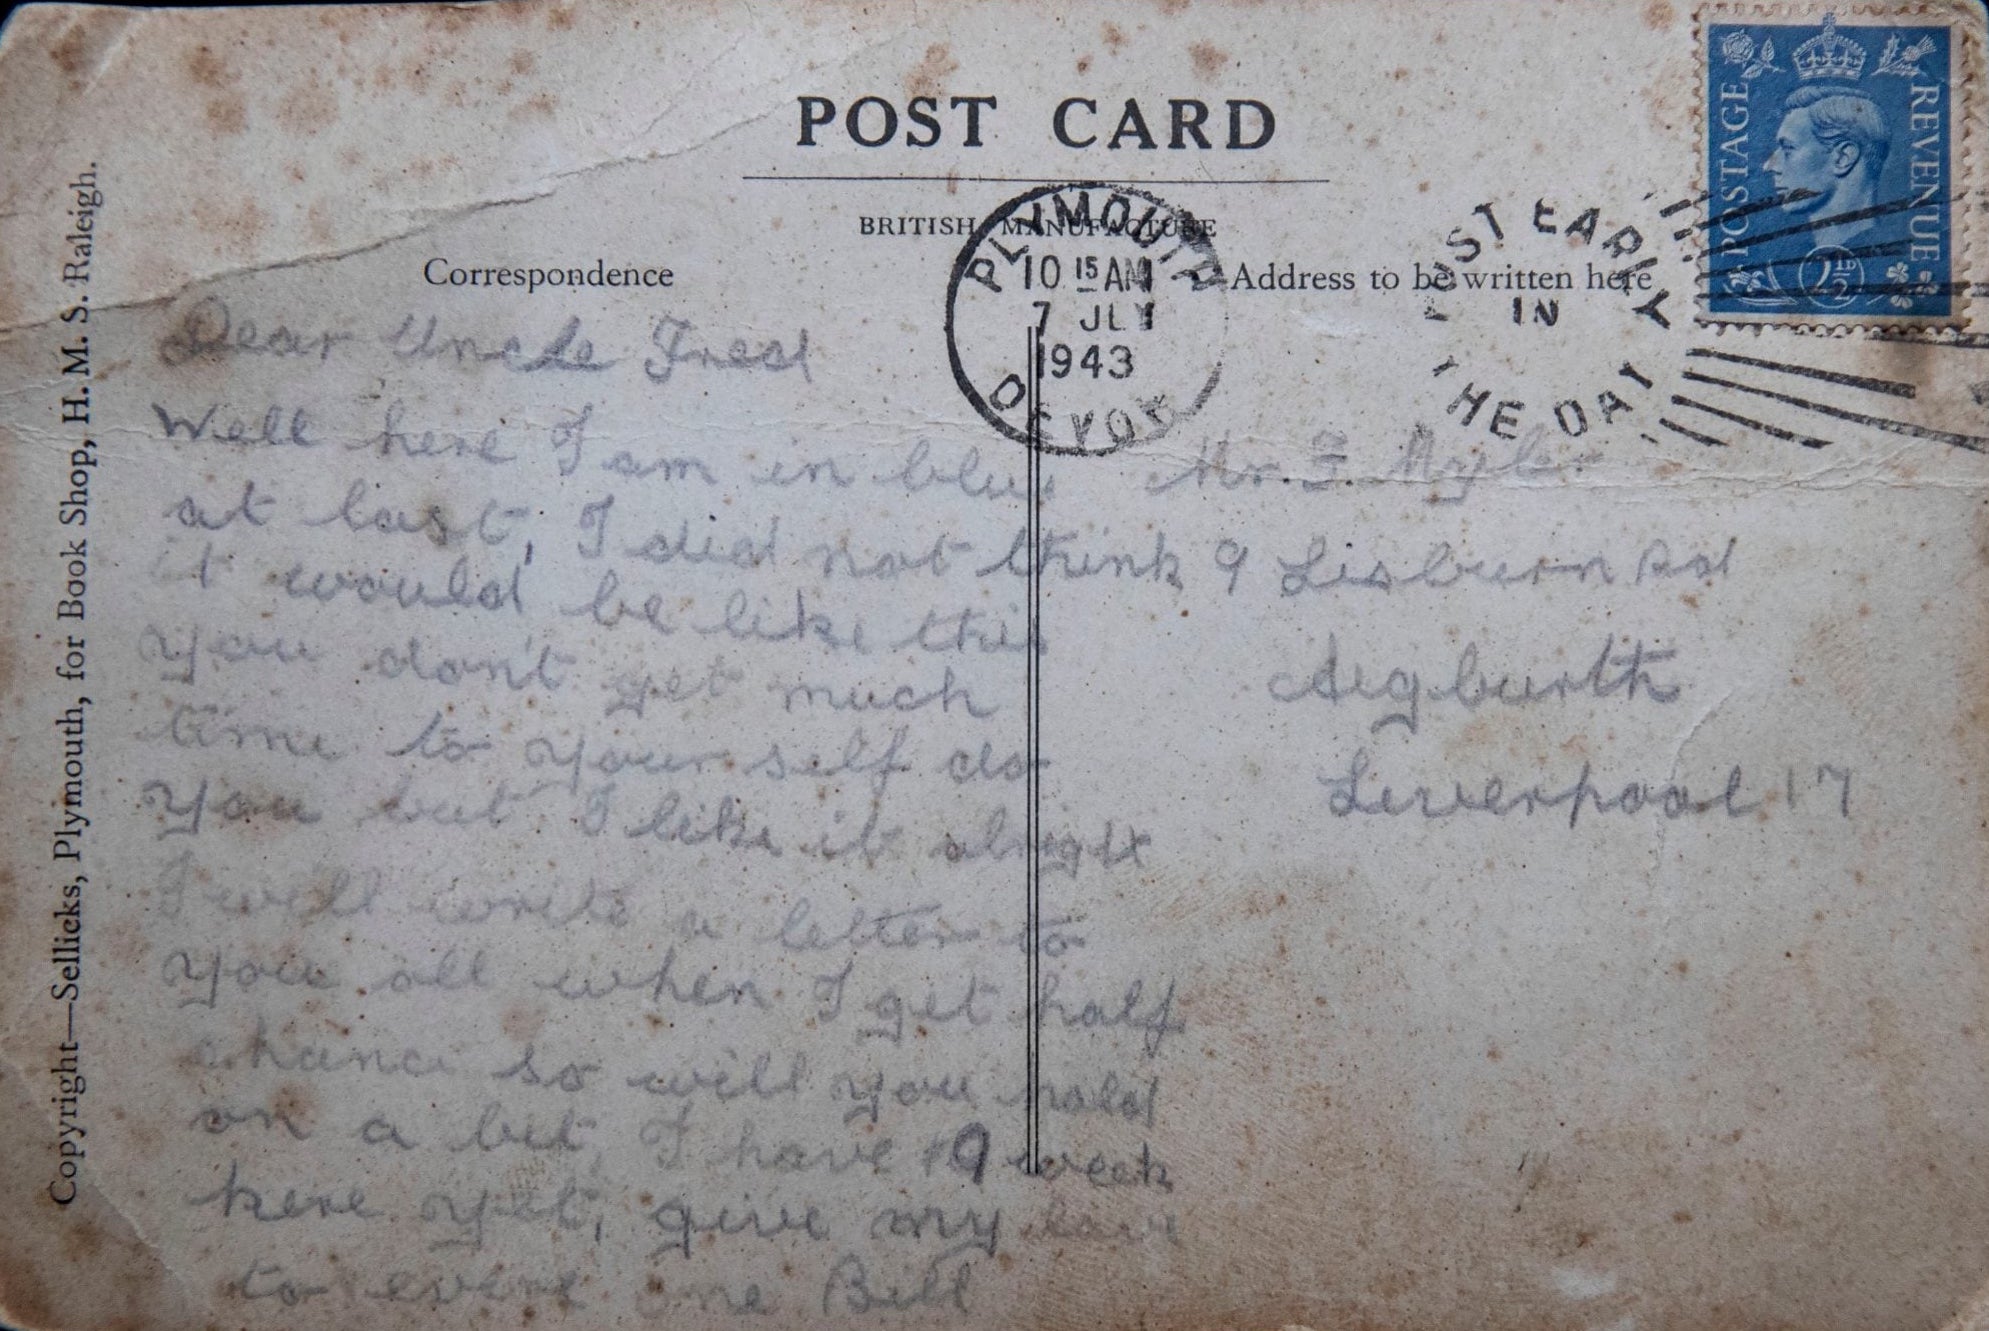 POST CARD
BRITISH MANUFACTURE
Correspondence
Address to be written here
PLYMOUTH
10 15 AM
7 JLY
1943
DEVON
POST EARLY
IN
THE DAY
POSTAGE
REVENUE
2½D
Dear Uncle Fred
Well here I am in blue
at last, I did not think
it would be like this
you don't get much
time to yourself do
you but I like it alright
I will write a letter to
you all when I get half
chance so will you hold
on a bit, I have 9 week
here yet, give my love
to every one Bill
Mr. F.
9 Lisburn Rd
Aigburth
Liverpool 17
Copyright—Sellicks, Plymouth, for Book Shop, H.M.S. Raleigh.